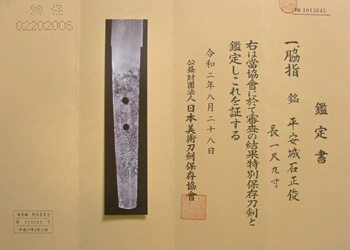 鑑定書
一、脇指 銘 平安城石正俊
長一尺九寸
右は當協會に於て審査の結果特別保存刀劍と
鑑定しこれを証する
令和二年八月二十八日
公益財團法人日本美術刀劍保存協會
特保
02202006
No 1013845